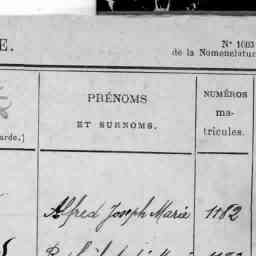 E.
N° 1003
de la Nomenclatu
PRÉNOMS
ET SURNOMS.
NUMÉROS
ma-
tricules.
arde.)
Alfred Joseph Marie 1182